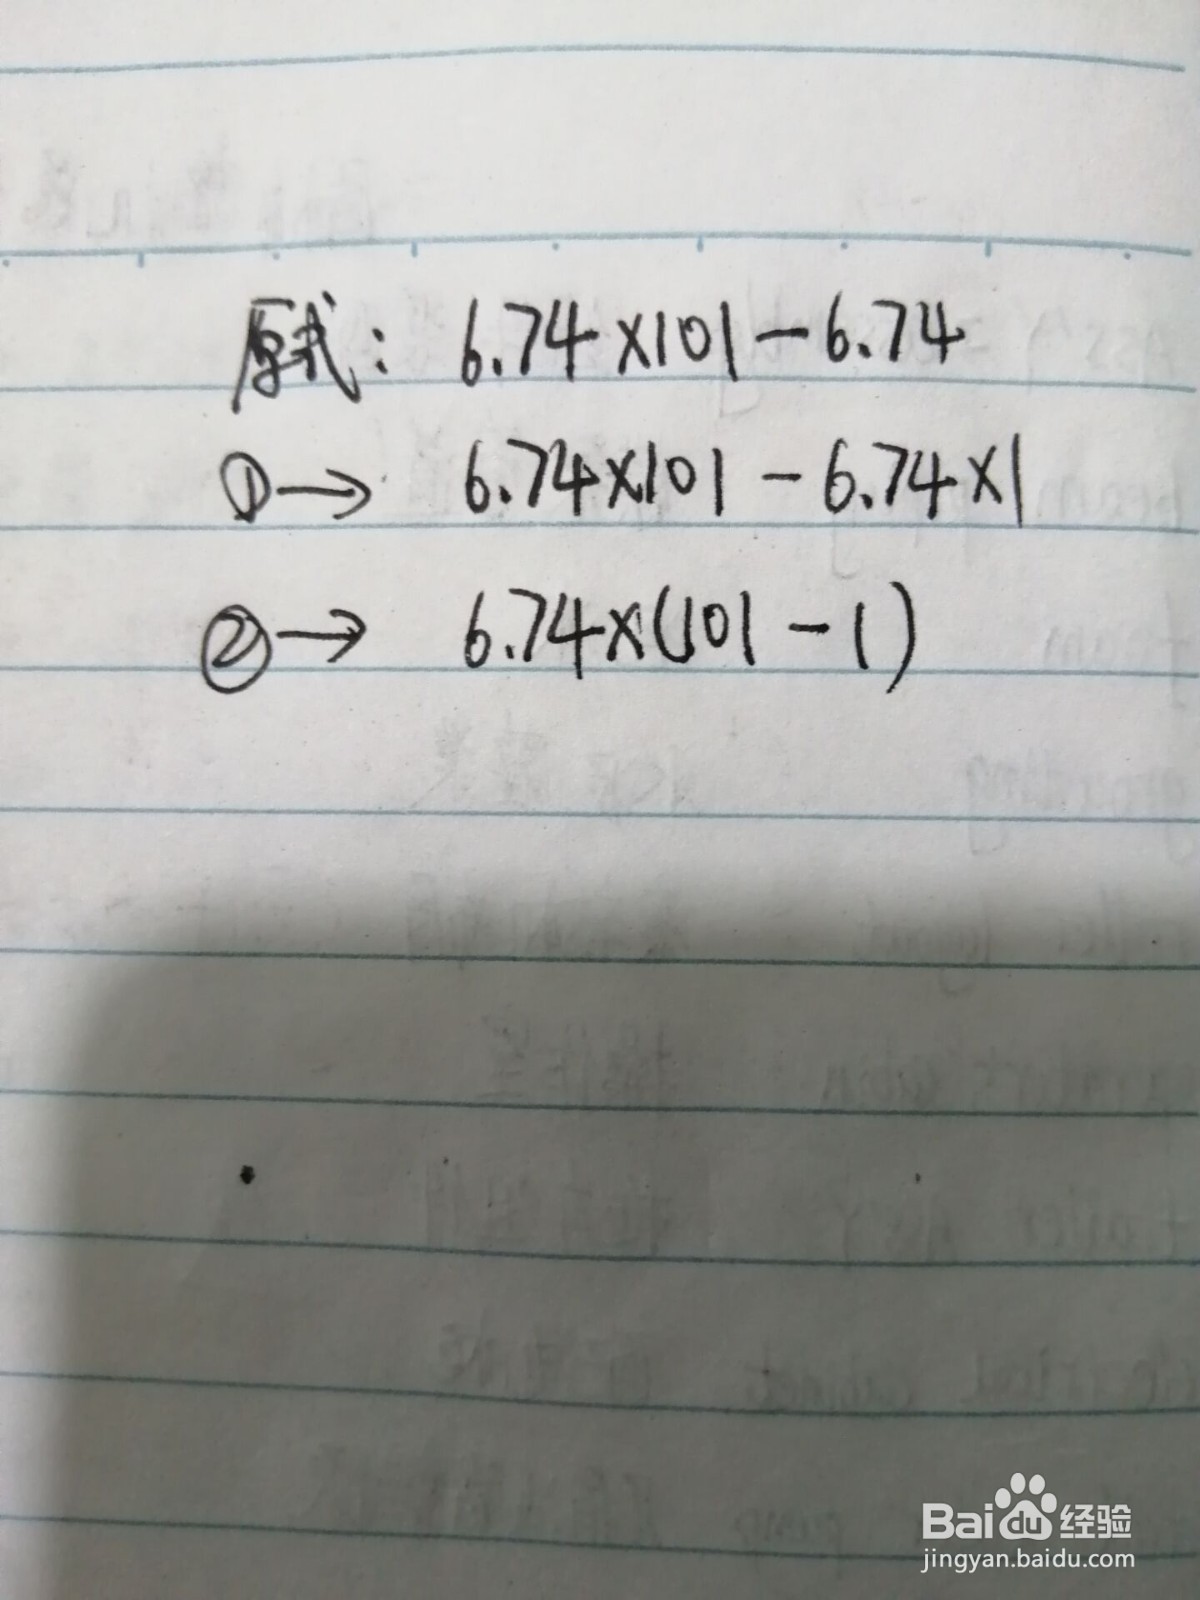 原式: 6.74×101-6.74
①→ 6.74×101-6.74×1
②→ 6.74×(101-1)
Baidu经验
jingyan.baidu.com